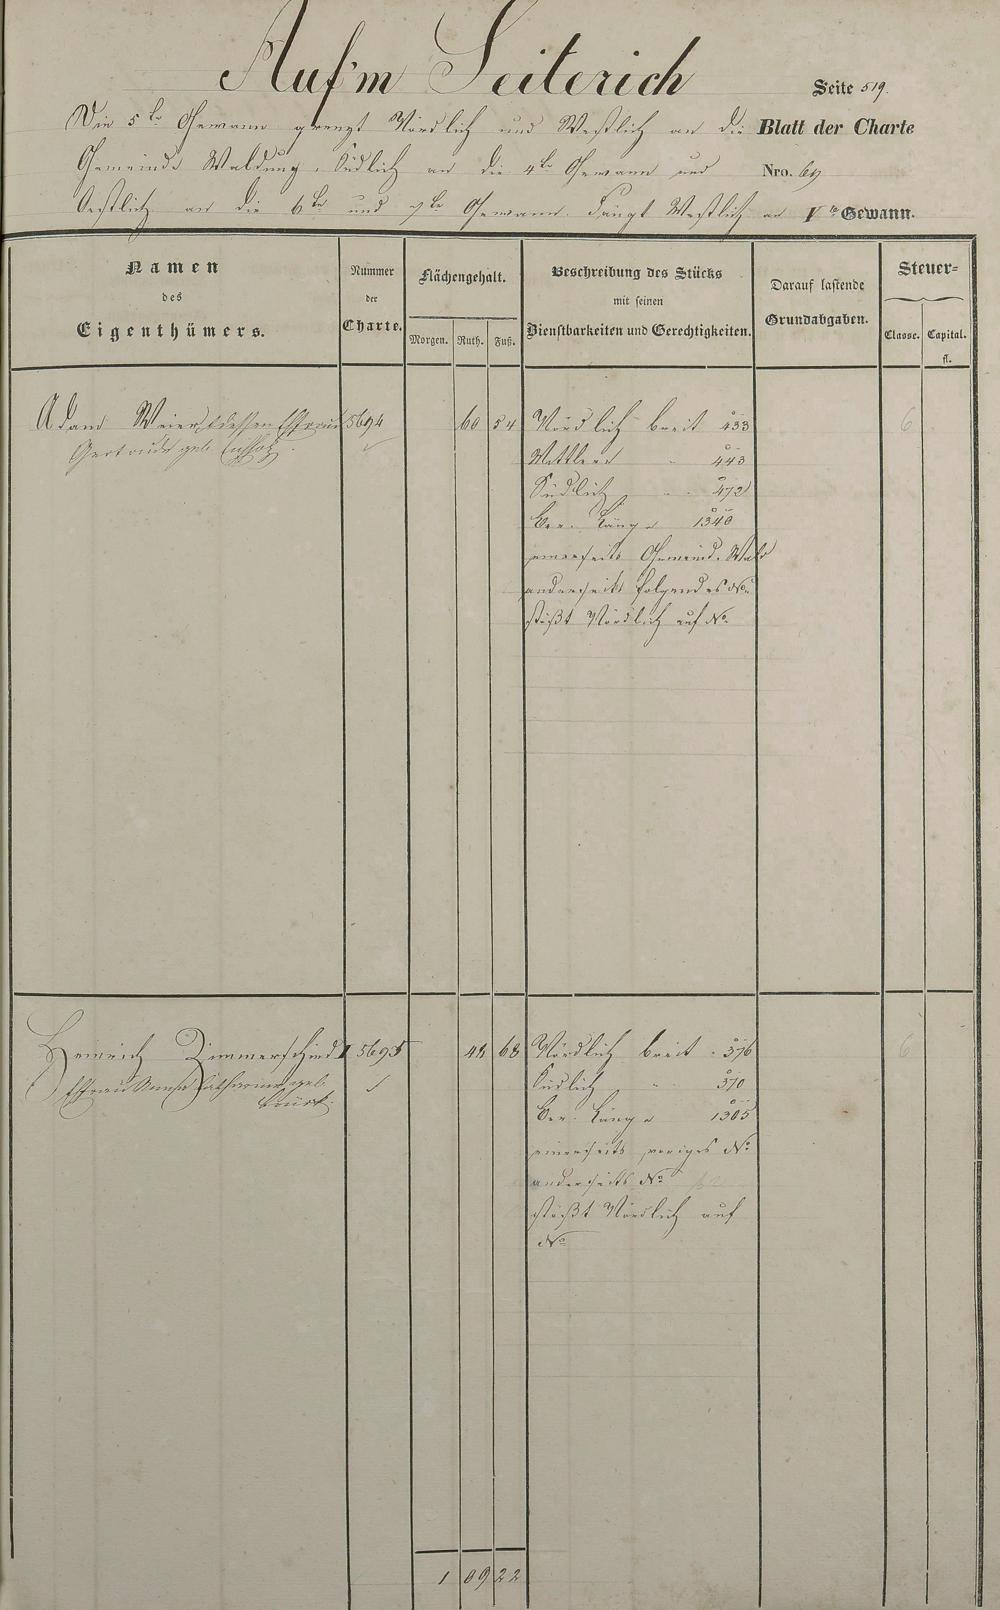 Auf'm Seiterich
Seite 519.
Die 5te Gewann grenzt Nördlich und Westlich an die
Blatt der Charte
Gemeinde Waldung, Südlich an die 4te Gewann und
Nro. 69
Oestlich an die 6te und 7te Gewann. Fängt Westlich an
Vte Gewann.
Namen
des
Eigenthümers.
Nummer
der
Charte.
Flächengehalt.
Morgen. Ruth. Fuß.
Beschreibung des Stücks
mit seinen
Dienstbarkeiten und Gerechtigkeiten.
Darauf lastende
Grundabgaben.
Steuer-
Classe. Capital.
fl.
Adam dessen Ehefrau 5694 60 54 Nördlich breit 433 6
Gertraude geb.
Mittlere " 443
Südlich " 472
Ger. Länge 1340
einerseits Gemeind. Wald
anderseits folgendes No.
stößt Nördlich auf No.
Heinrich Zimmerschied II 5695 48 68 Nördlich breit 376 6
Ehefrau Anna Catharine geb.
Südlich " 370
Ger. Länge 1305
einerseits voriges No.
anderseits No.
stößt Nördlich auf
No.
1 09 22